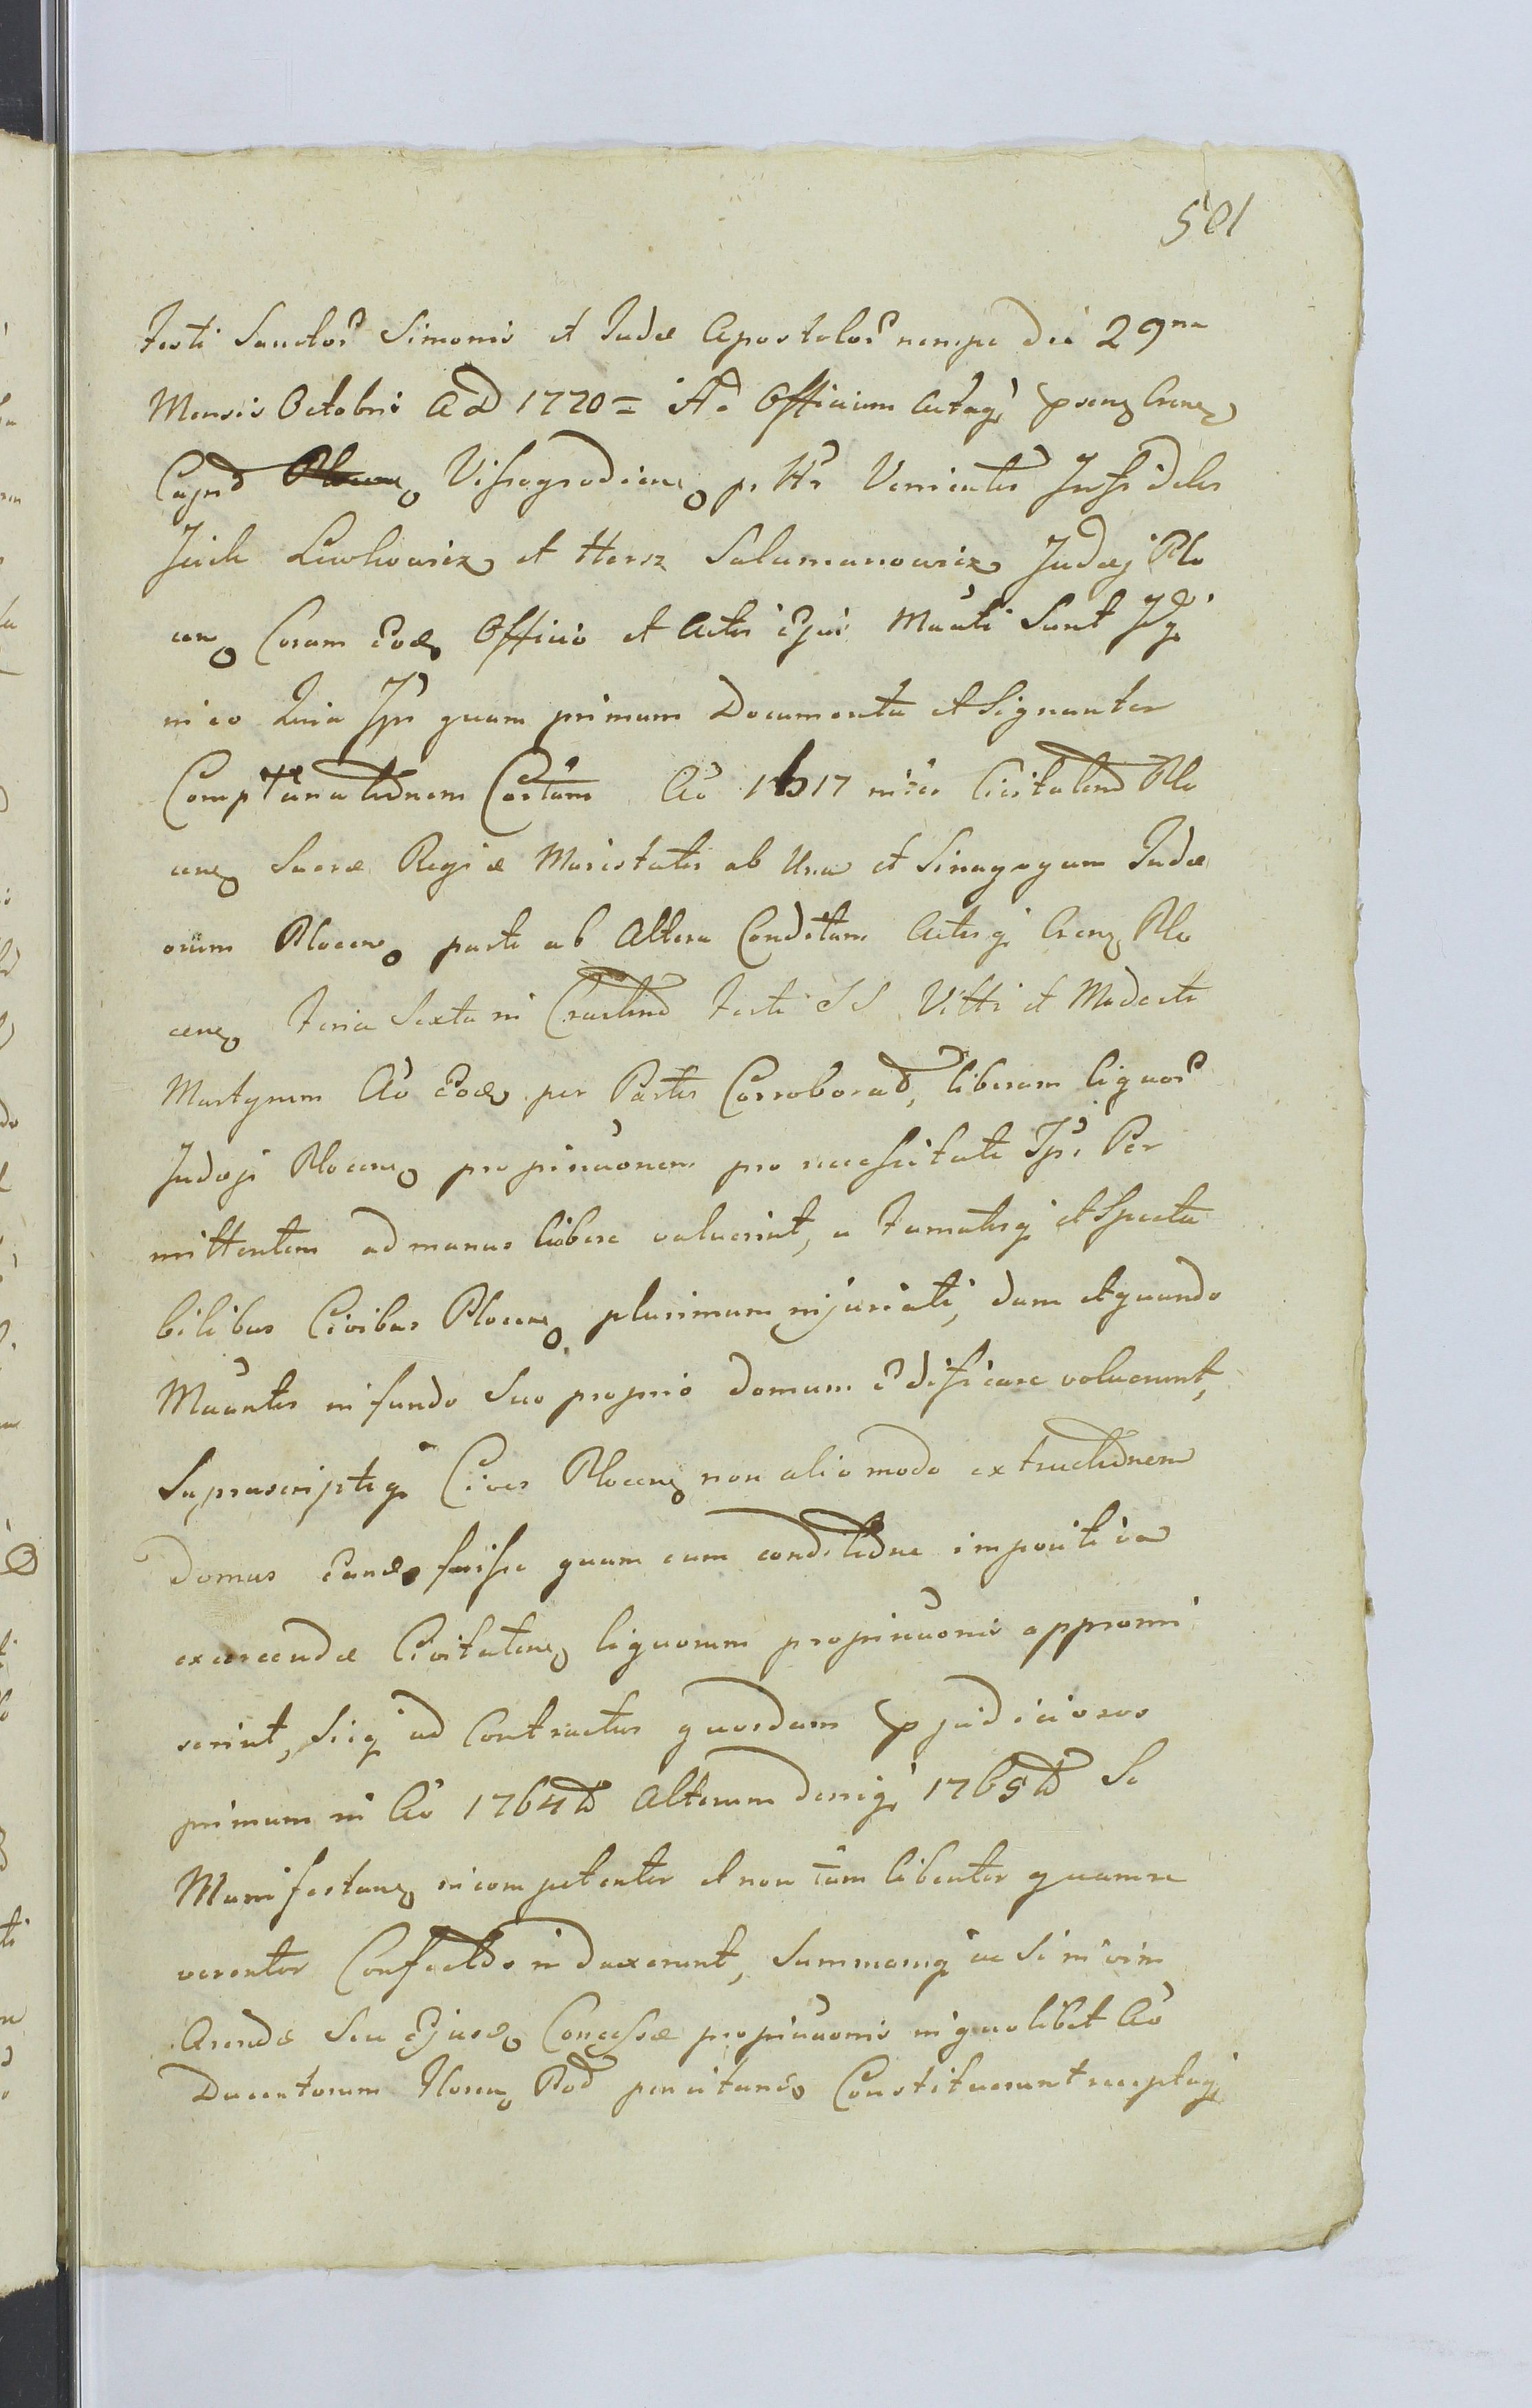 501
Festi Sanctor Simonis et Judæ Apostolor nempe die 29na
Mensis Octobris A D 1770 = Ad Officium Actaq præsen Cren
Capnd Plocen Vissogrodien p Hr Venientes Infideles
Jcick Lewkowicz et Hersz Salamanowicz Judæj Plo
cen Coram Eod Officio et Actis Ejus Manti Sunt Idq
in eo Quia Ipsi quam primum Documenta et Signanter
Complanationem Certam Ao 1617 inter Civitatend Plo
cen Sacræ Regiæ Maiestatis ab Una et Sinagogam Judæ
orum Plocen parte ab Altera Conditam Actisq Cren Plo
cen Feria Sexta in Crastino Festi SS Vitti et Modesti
Martyrum Ao Eod per Partes Corroborad, liberam liquor
Judæji Plocen propinaonem pro necessitate Ips Per
mittentem ad manus libere valuerint, a Famatisq et Specta
bilibus Civibus Plocen plurimum injuriati, dum et quando
Manntes in fundo Suo proprio domum Edificare voluerunt,
Suprascriptiq Cives Plocen non alio modo extructionem
Domus eand fuisse quam cum conditione impositiva
exercendæ Civitaten liquorum propinaonis appromi
serint, Siq ad Contractus quosdam præjudiciosos
primum in Ao 1764to Alterum deniq 1765to Se
Manifestan incompetenter et non tam libenter quam re
verenter Confectos induxerunt, Summamq ac Si in vim
Arendæ Seu Ejusd Concessæ propinaonis in quolibet Ao
Ducentorum Floren Pol pensitand Constituerunt receptaq